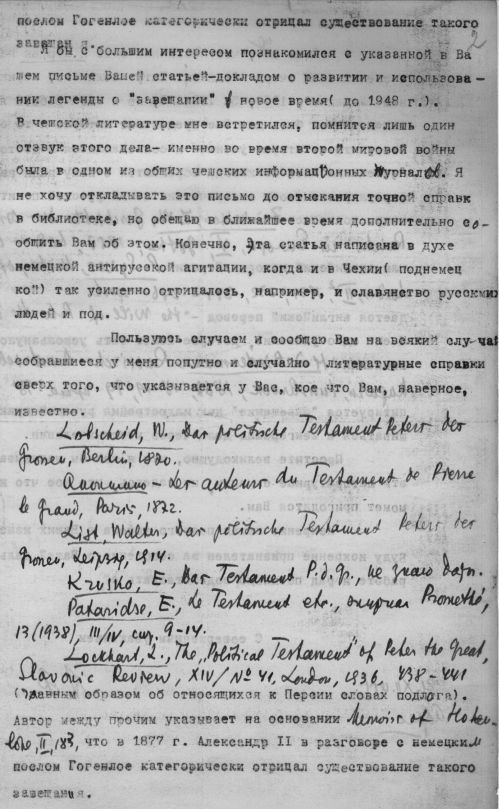 послом Гогенлое категорически отрицал существование такого
завещания.
2
Я бы с большим интересом познакомился с указанной в Ва
шем письме Вашей статьей-докладом о развитии и использова-
нии легенды о "завещании" в новое время( до 1948 г.).
В чешской литературе мне встретился, помнится лишь один
отзвук этого дела- именно во время второй мировой войны
была в одном из общих чешских информационных журналов. Я
не хочу откладывать это письмо до отыскания точной справк
в библиотеке, но обещаю в ближайшее время дополнительно со-
общить Вам об этом. Конечно, эта статья написана в духе
немецкой антирусской агитации, когда и в Чехии( поднемец
кой) так усиленно отрицалось, например, и славянство русских
людей и под.
Пользуюсь случаем и сообщаю Вам на всякий случай
собравшиеся у меня попутно и случайно литературные справки
сверх того, что указывается у Вас, кое что Вам, наверное,
известно.
Lobscheid, W., Das politische Testament Peters der
Grossen, Berlin, 1870.
Anonymus - Les auteurs du Testament de Pierre
le grand, Paris, 1872.
List, Walter, Das politische Testament Peters der
Grossen, Leipzig, 1914.
Krusko, E., Das Testament P.d.Gr., не знаю даты.
Pataridse, E., Le Testament etc., журнал Promethé,
13 (1938), III/IV, стр. 9-14.
Lockhart, L., The „Political Testament" of Peter the Great,
Slavonic Review, XIV/№ 41, London, 1936, 438-441
(главным образом об относящихся к Персии словах подлога).
Автор между прочим указывает на основании Memoirs of Hohen-
lohe, II, 183, что в 1877 г. Александр II в разговоре с немецким
послом Гогенлое категорически отрицал существование такого
завещания.